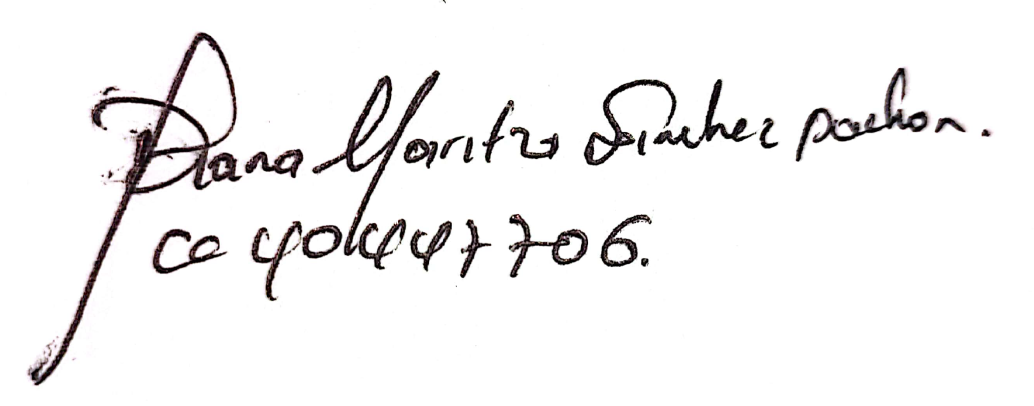 Diana Maritza Sanchez pachon.
CC 404447706.